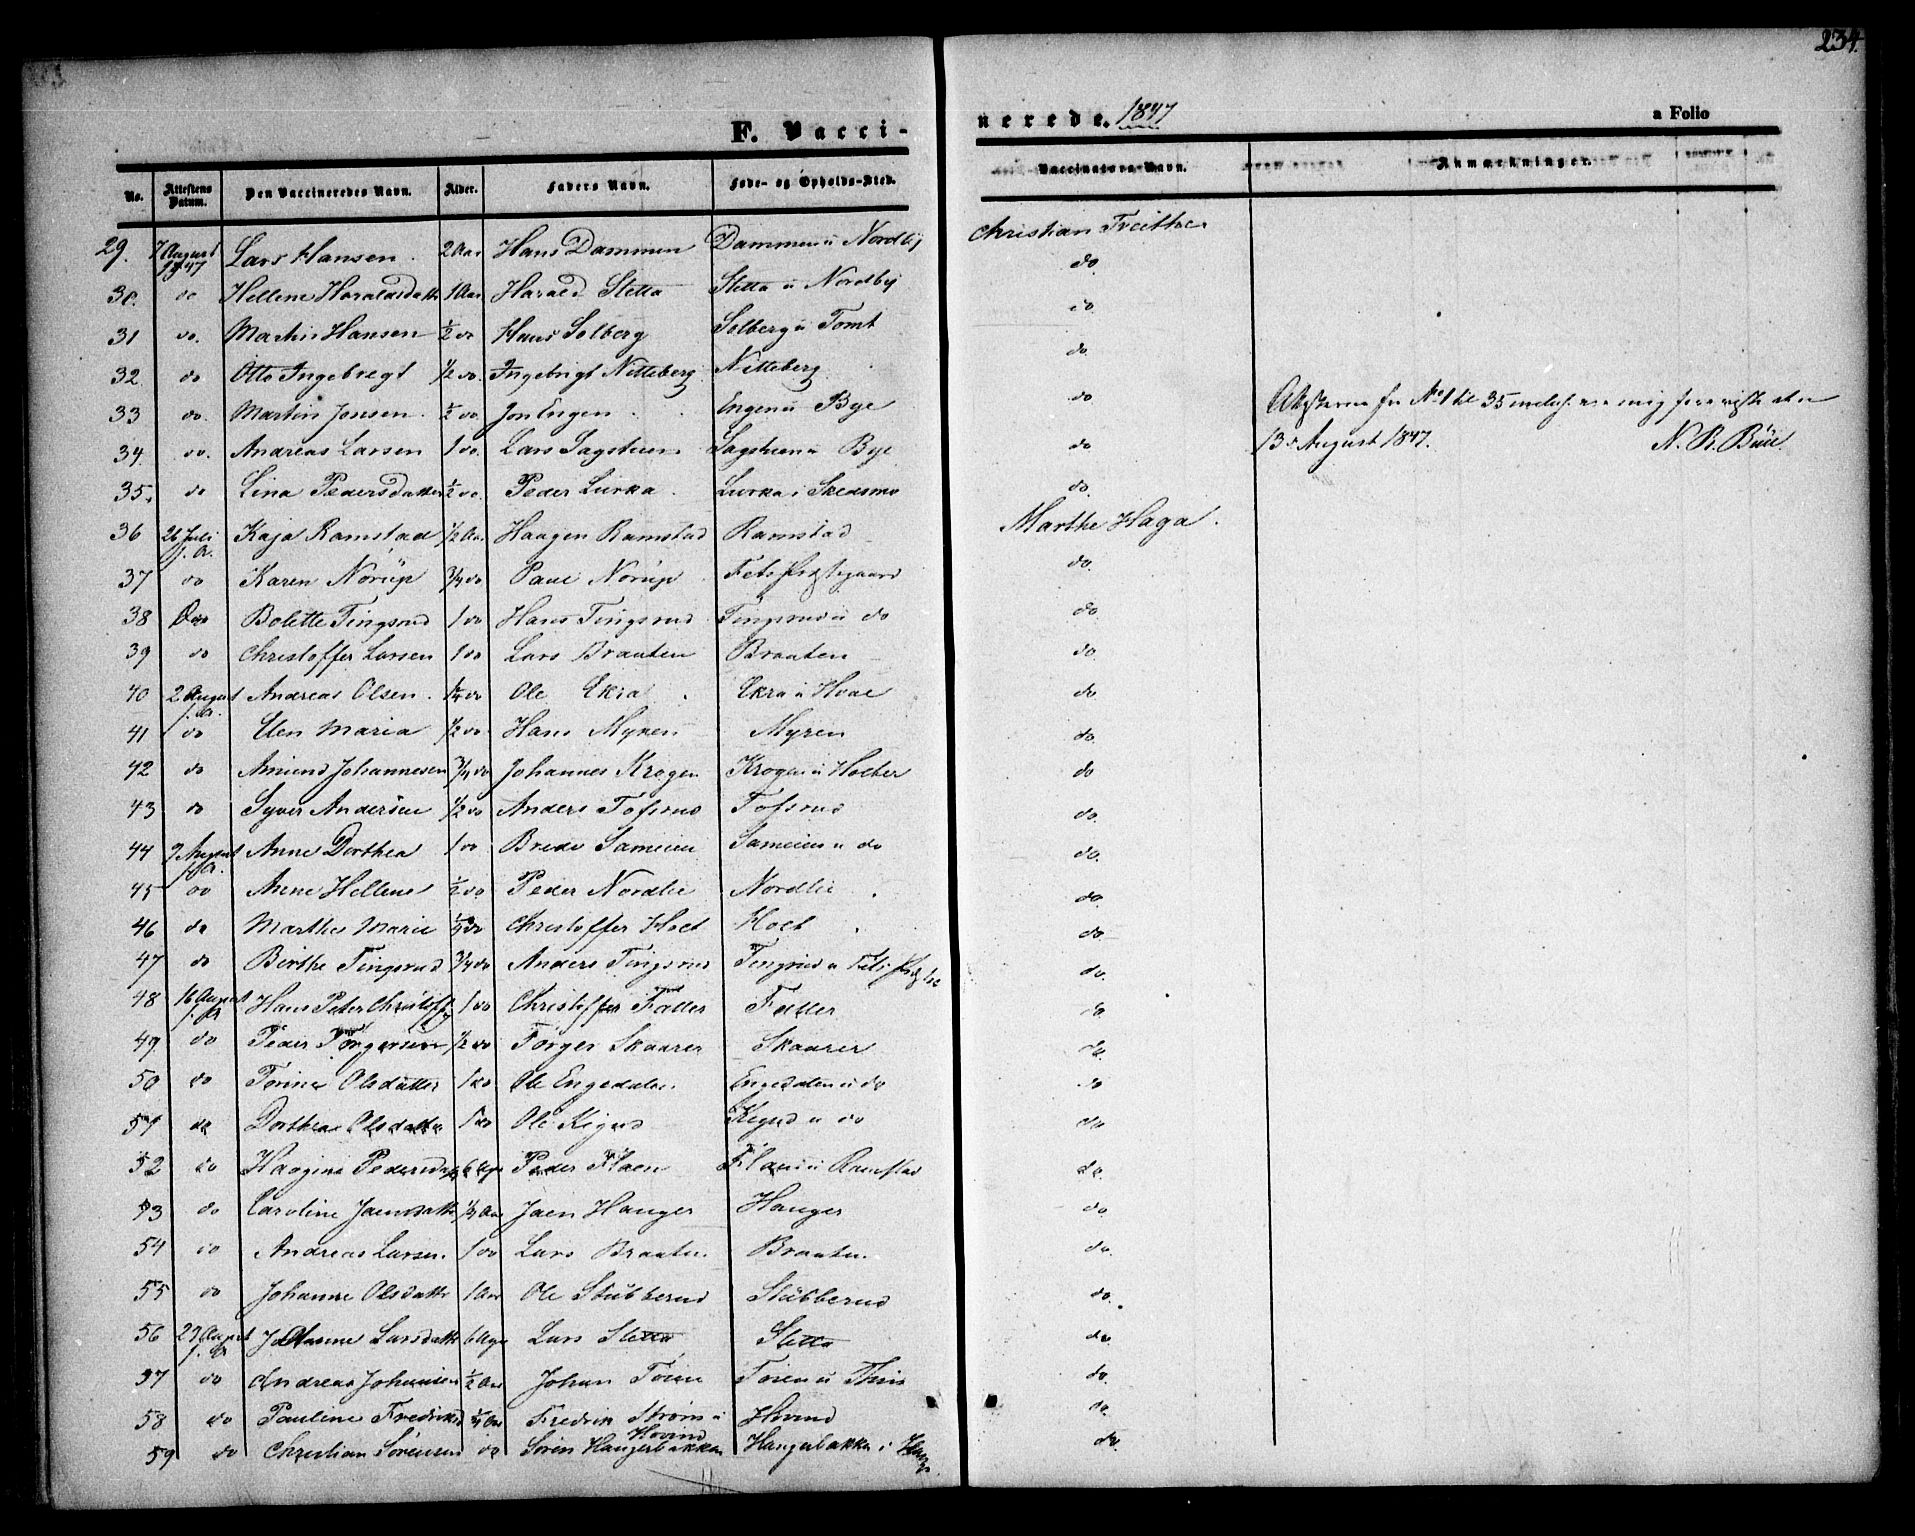 234.
F. Vaccinerede. 1847 a Folio
No. Attestens Datum. Den Vaccineredes Navn. Alder. Faders Navn. Føde- og Opholds-Sted. Vaccinateurs Navn. Anmærkninger.
29. 7 August 1847 Lars Hansen. 2 Aar Hans Dammen Dammen u Nordby Christian
30. do Hellene Haraldsdatter 1 Aar Harald Sletta Sletta u Nordby do.
31 do. Martin Hansen ½ do Hans Solberg Solberg u Tomt do.
32. do Otto Ingebregt ½ do. Ingebrigt Nitteberg Nitteberg do.
33 do. Martin Jonsen. ½ do. Jon Engen Engen u Bye do
34. do. Andreas Larsen 1 do. Lars Sagstuen Sagstuen u Bye do
35. do Lina Pedersdatter ½ do. Peder Lurka Lurka i Skedsmo do.
No 1 til 35 mig
13 August 1847.
36 26 Juli f. A. Kaja Ramstad ½ Aar Haagen Ramstad Ramstad Marthe Haga.
37 do Karen Norup ¾ do Paul Norup Fets Præstegaard do.
38 do Bolette Tingsrud 1 do Hans Tingsrud Tingsrud u do do.
39 do Christoffer Larsen 1 do Lars Braaten Braaten do.
40 2 August f. A. Andreas Olsen. ¼ do Ole Ekra Ekra u Hvae do
41 do Elen Maria ½ do Hans Myren Myren do.
42 do Amund Johannesen ¾ do Johannes Krogen Krogen u Holter do
43 do Syver Andersen ½ do Anders Tofsrud Tofsrud do.
44 9 August f. A. Anne Dorthea 1 do. Brede Sameien Sameien u do do.
45 do Anne Hellene ½ do Peder Nordlie Nordlie do.
46 do Marthe Marie ¼ do Christoffer Hoel Hoel do.
47 do Birthe Tingsrud ¾ do Anders Tingsrud Tingsrud u Fets do.
48 16 August f. A. Hans Peter Christoff 1 do Christoffer Faller Faller do.
49. do Peder Torgersen ½ do Torger Skaarer Skaarer do.
50 do Torine Olsdatter 1 do Ole Engedalen Engedalen u do do
51 do Dorthea Olsdatter 1 do Ole u do do
52 do Haagine Pedersd 6 Uger Peder Flaen Flaen u Ramstad do.
53 do Caroline Jaensdatter Aar Jaen Hauger Hauger do.
54 do Andreas Larsen. 1 do Lars Braaten. Braaten. do.
55 do Johanne Olsdatter 1 Aar Ole Stubberud Stubberud do.
56 23 August f. A. Johanne Larsdatter 6 Uger Lars Sletta Sletta do
57 do Andreas Johansen ½ Aar Johan Toien Toien u do.
58 do Pauline Fredriksd ¼ Aar Fredrik Strøm u Hovind Hovind do.
59 do Christian Sørensen do Søren Haugerbakken Haugerbakken i do.